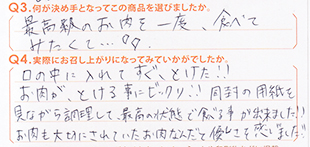 Q3.何が決め手となってこの商品を選びましたか。
最高級のお肉を一度、食べて
みたくて…♡♡
Q4.実際にお召し上がりになってみていかがでしたか。
口の中に入れてすぐ、とけた!!
お肉が、とける事にビックリ!!同封の用紙を
見ながら調理して最高の状態で食べる事が出来ました!!
お肉も大切にされていたお肉なんだと優しさを感じました!!